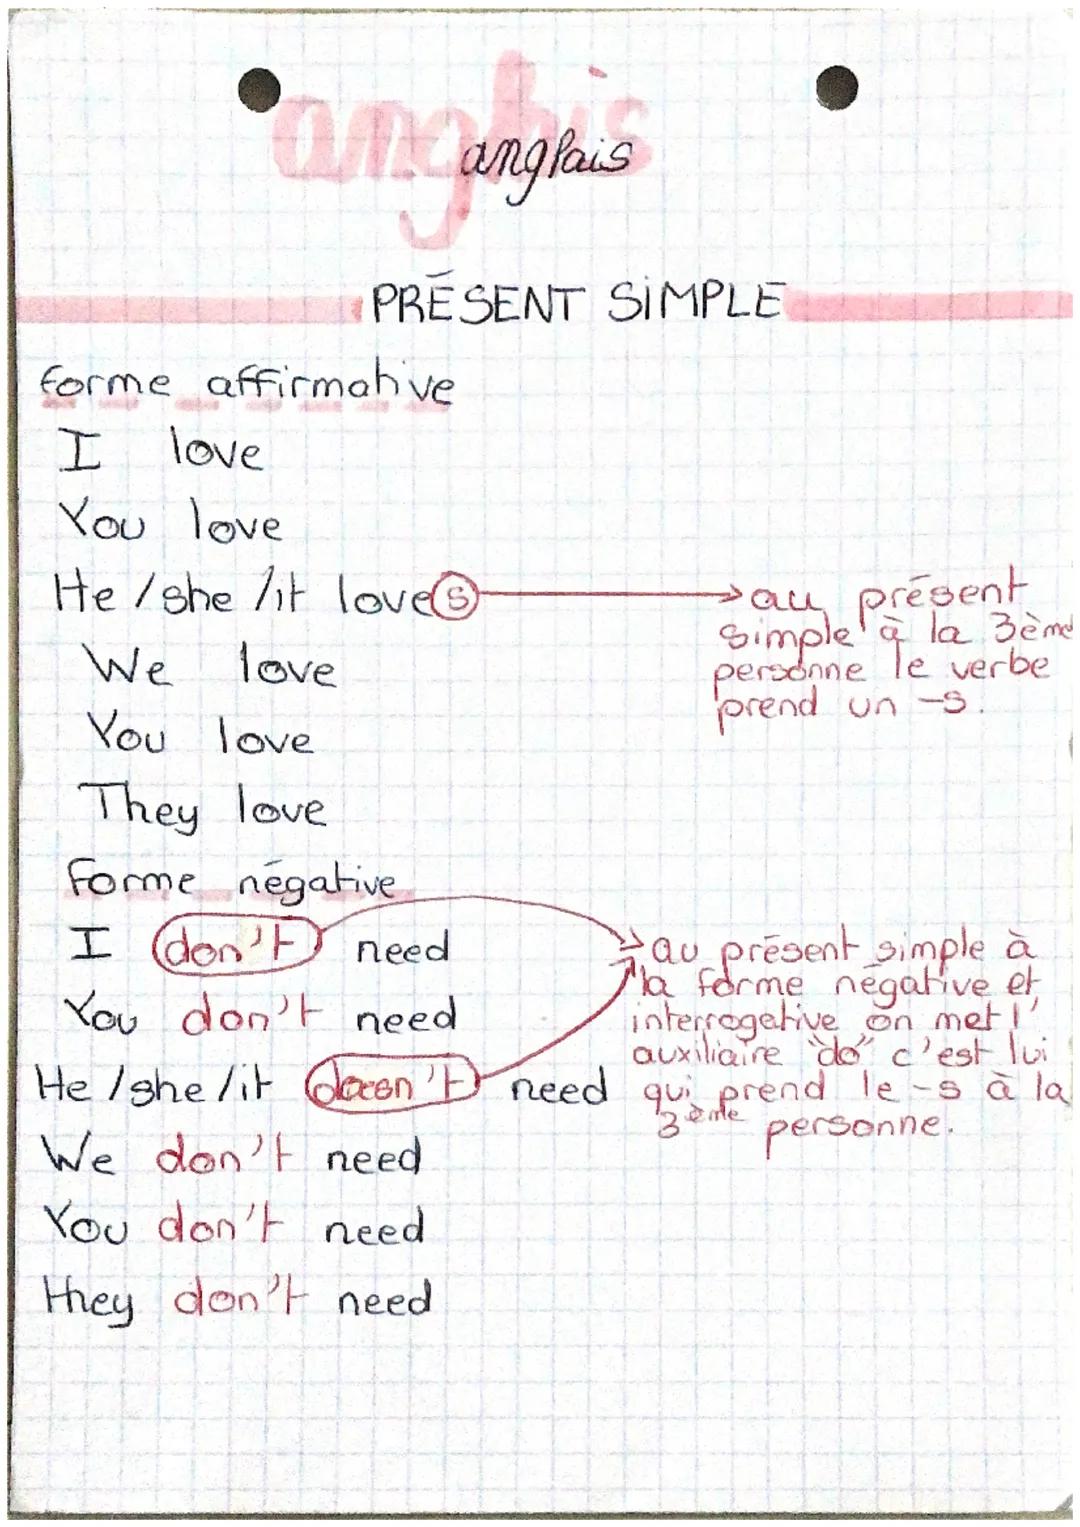 anglais
anglais
PRÉSENT SIMPLE
forme affirmative
I love
You love
He / she / it loves → au présent
simple à la 3ème
personne le verbe
prend un -s.
We love
You love
They love
Forme négative
I don't need → au présent simple à
la forme négative et
interrogative on met l'
auxiliaire "do" c'est lui
qui prend le -s à la
3ème personne.
You don't need
He / she / it doesn't need
We don't need
You don't need
They don't need